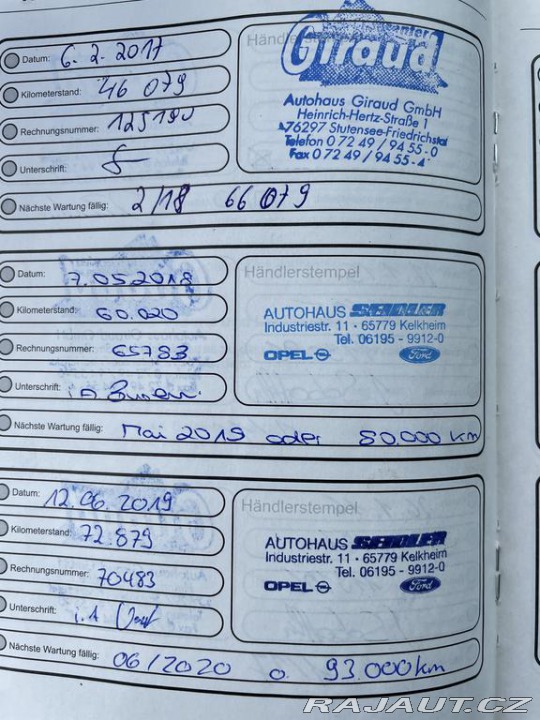 Datum: 6.2.2017
Kilometerstand: 46 079
Rechnungsnummer:
Unterschrift:
Nächste Wartung fällig: 2/18 66 079
Giraud
Autohaus Giraud GmbH
Heinrich-Hertz-Straße 1
76297 Stutensee-Friedrichstal
Telefon 0 72 49 / 94 55-0
Fax 0 72 49 / 94 55-4
Datum: 7.05.2018
Kilometerstand: 60.020
Rechnungsnummer: 65783
Unterschrift:
Nächste Wartung fällig: Mai 2019 oder 80.000 km
Händlerstempel
AUTOHAUS SEIDLER
Industriestr. 11 · 65779 Kelkheim
Tel. 06195 - 9912-0
OPEL Ford
Datum: 12.06.2019
Kilometerstand: 72.879
Rechnungsnummer: 70483
Unterschrift: i.A
Nächste Wartung fällig: 06/2020 o. 93.000km
Händlerstempel
AUTOHAUS SEIDLER
Industriestr. 11 · 65779 Kelkheim
Tel. 06195 - 9912-0
OPEL Ford
RAJAUT.CZ